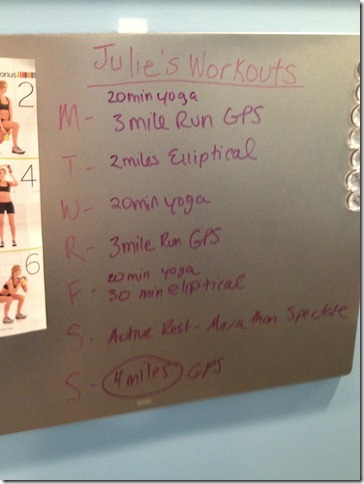 Julie's Workouts
20min yoga
M- 3mile Run GPS
T- 2miles Elliptical
W- 20min yoga
R- 3mile Run GPS
20 min yoga
F- 30 min elliptical
S- Active Rest - Marathon Spectate
S- 4miles GPS
onus
2
4
6